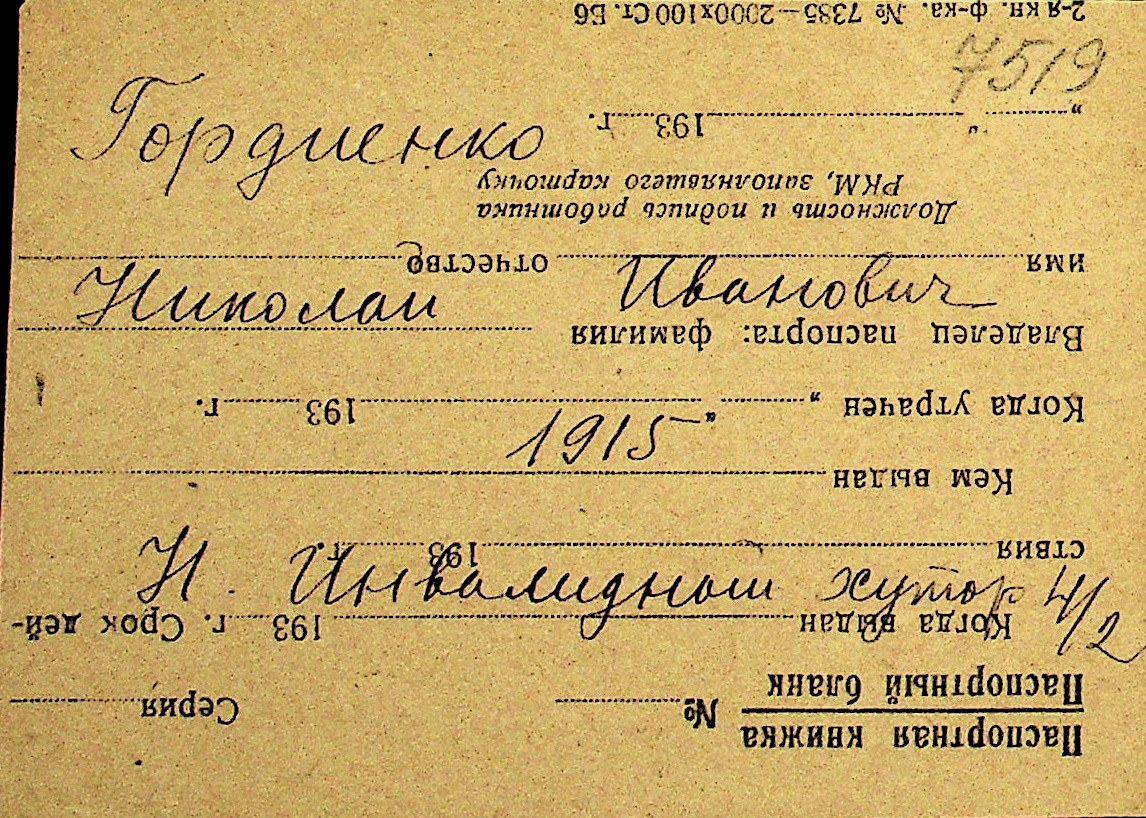 7519
Гордиенко
Николай Иванович
1915
Н. Инвалидный хутор 4/2
Паспортная книжка
Паспортный бланк № Серия
Когда выдан 193 г. Срок дей-
ствия 193 г.
Кем выдан
Когда утрачен „ “ 193 г.
Владелец паспорта: фамилия
имя отчество
Должность и подпись работника
РКМ, заполнявшего карточку
„ “ 193 г.
2-я кн. ф-ка. № 7385—2000х100 Ст. Б6